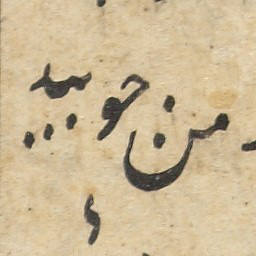 من جویید